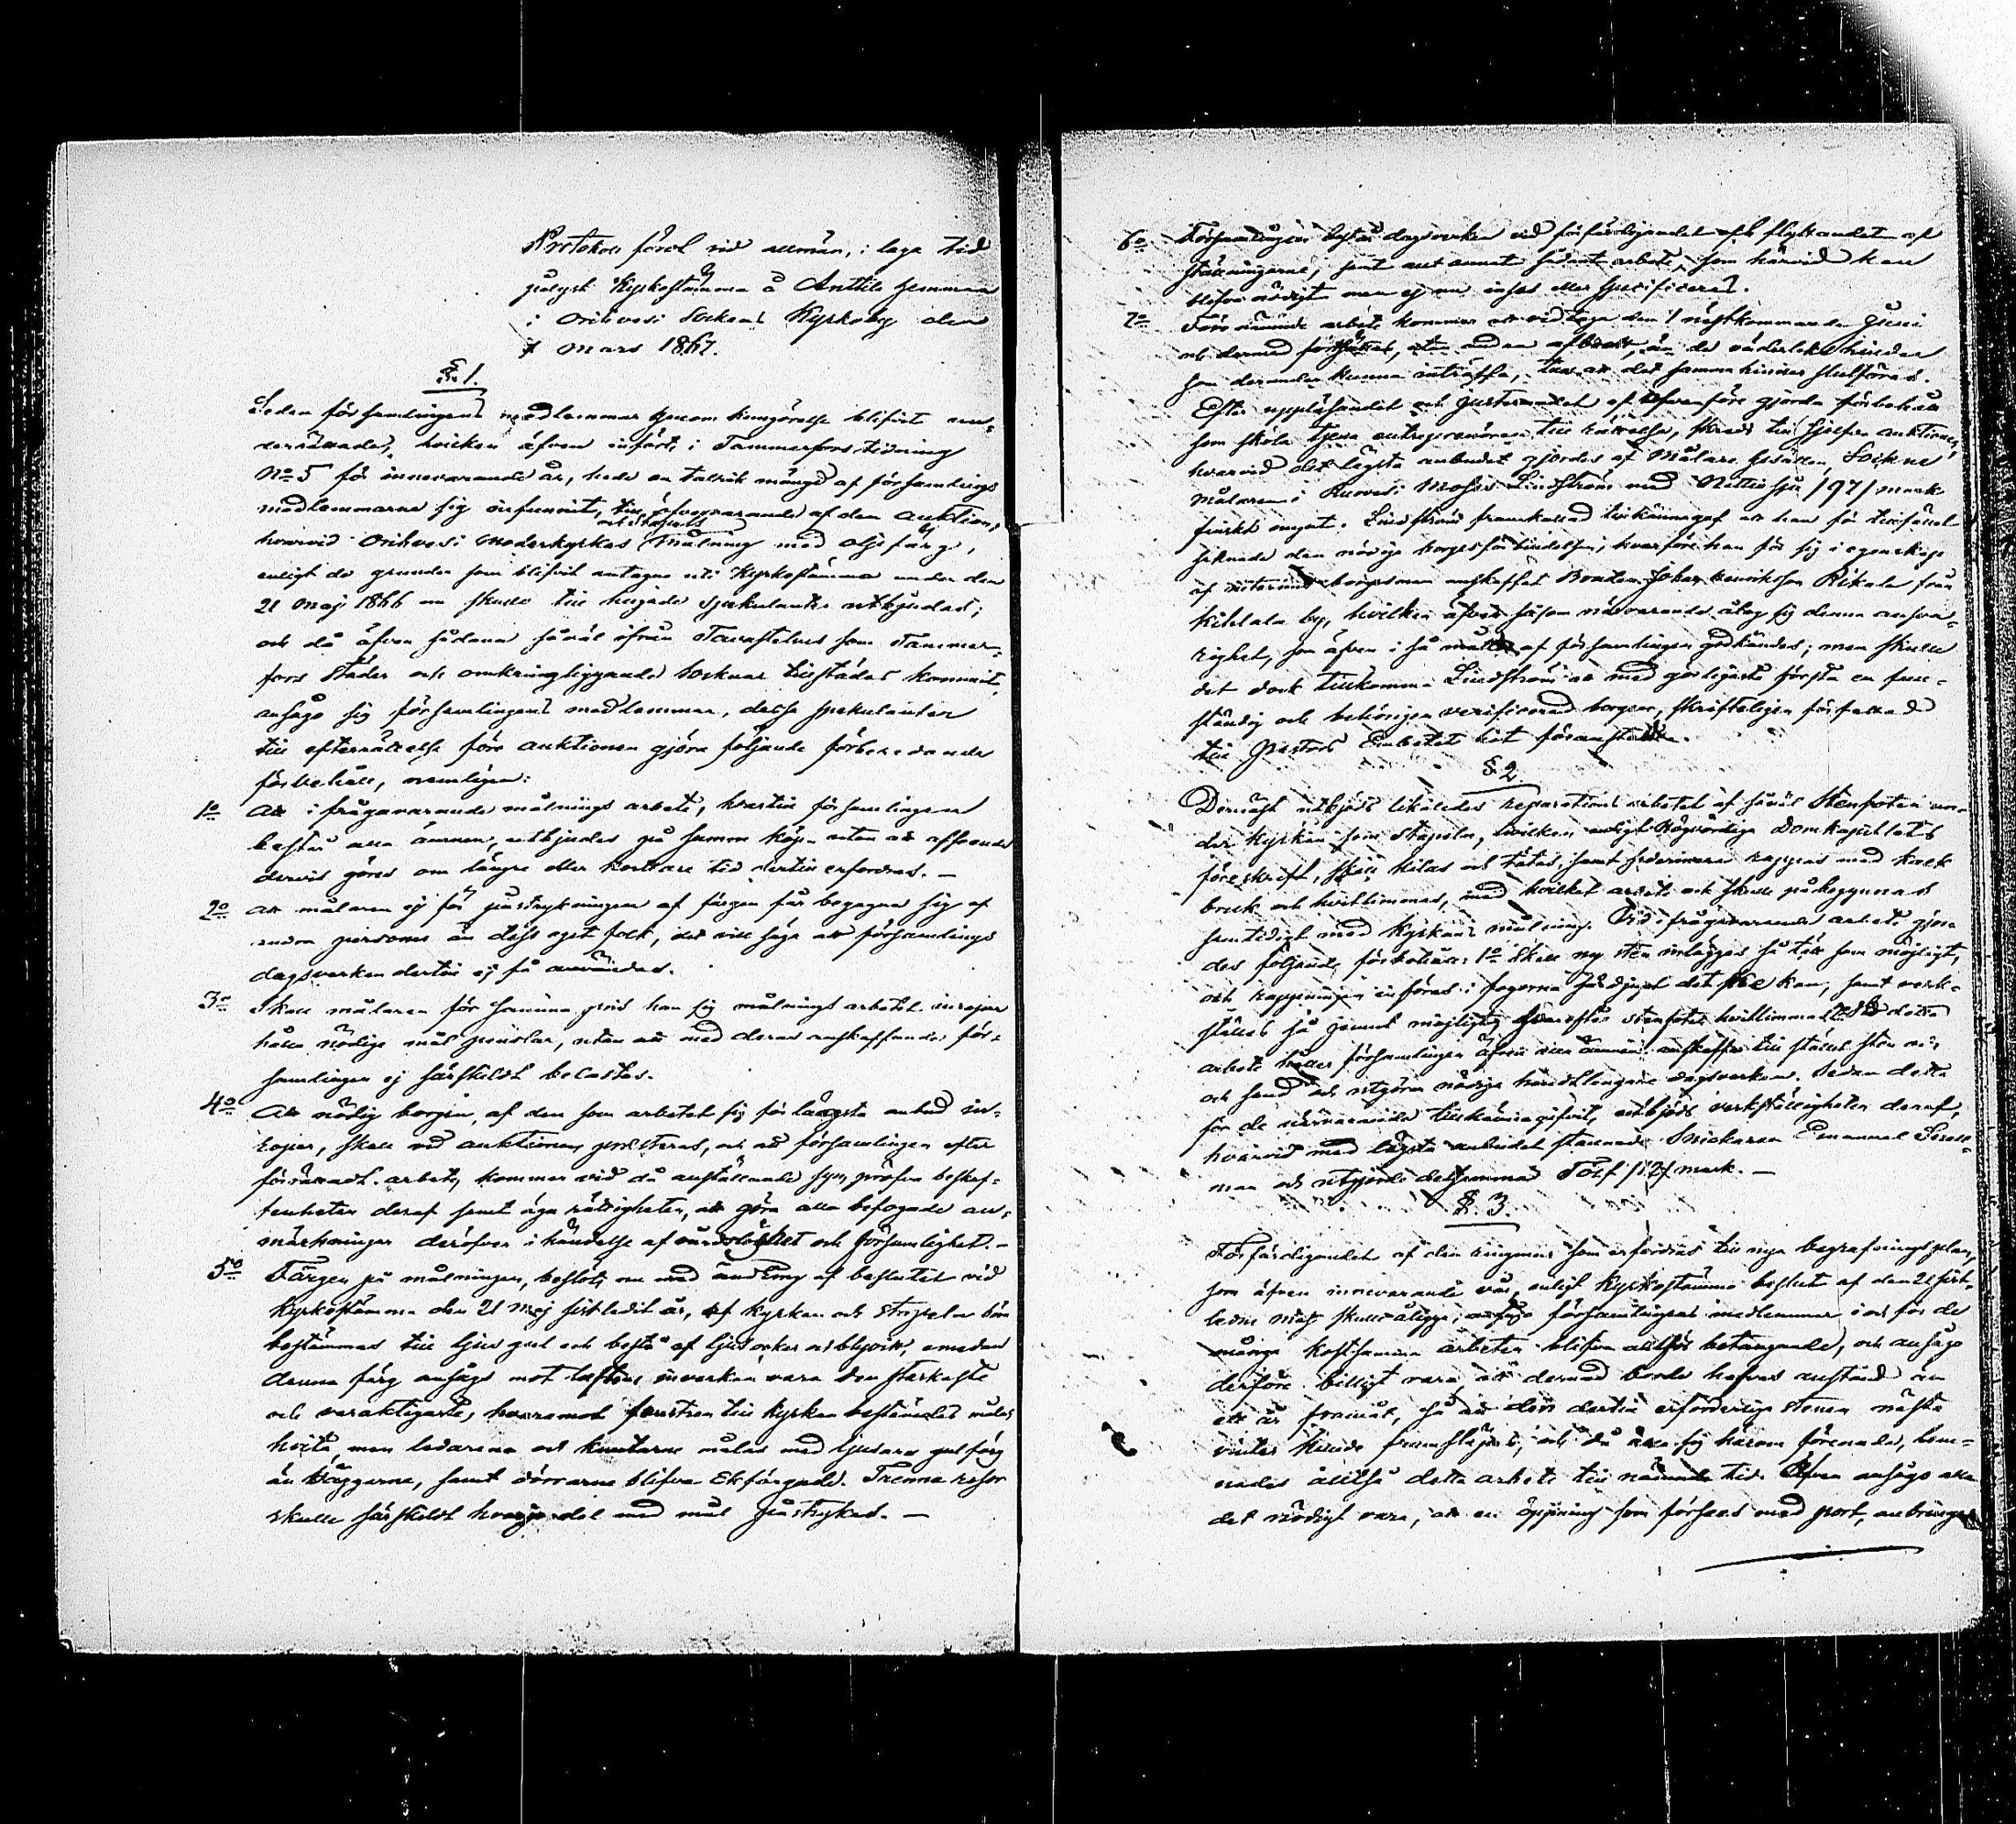 Protokoll fördt vid allmän, i laga tid
pålyst Kyrkostämma å Anttila hemman
i Orihvesi Sockens Kyrkoby den
7 Mars 1867.
§ 1.
Sedan församlingens medlemmar genom kungörelse blifvit un-
derrättade, hvilken äfven införts i Tammerfors tidning
No 5 för innevarande år, hade en talrik mängd af församlings
medlemmarne sig infunnit, till öfvervarande af den auktion,
och stapels
hvarvid Orihvesi moderkyrkas målning med oljefärg,
enligt de grunder som blifvit antagne uti Kyrkostämma under den
21 Maj 1866 nu skulle till hugade spekulanter utbjudas;
och då äfven sådana såväl ifrån Tavastehus som Tammer-
fors städer och omkringliggande Socknar tillstädes kommit,
ansågo sig församlingens medlemmar, dessa spekulanter
till efterrättelse före auktionen gjöra följande förberedande
förbehåll, nemligen:
1o Att i frågavarande målnings arbete, hvartill församlingen
bestå alla ämnen, utbjudes på samma köp utan att afseende
dervid göres om längre eller kortare tid dertill erfordras. —
2o Att målaren ej för påstrykningen af färgen får begagna sig af
andra personer än dess eget folk, det vill säga att församlings
dagsverken dertill ej få användas.
3o Skall målaren för samma pris han sig målnings arbetet inropar
hålla nödige mål penslar, utan att med deras anskaffande för-
samlingen ej särskildt belastas.
4o Att nödig borgen, af den som arbetet sig för lägsta anbud in-
ropar, skall vid auktionen presteras, och att församlingen efter
förrättadt arbete, kommer vid då anställande syn, pröfva beskaf-
fenheten deraf samt äga rättigheten, att göra alla befogade an-
märkningar deröfver i händelse af vårdslöshet och försumlighet. —
5o Färgen på målningen, beslöts nu med ändring af beslutet vid
Kyrkostämma den 21 Maj sistledit år, af kyrkan och stapeln
bestämmas till ljus gul och bestå af ljus ocker och blyhvitt, emedan
denna färg ansågs mot luftens inverkan vara den starkaste
och varaktigaste, hvaremot fenstren till kyrkan bestämdes målas
hvita, men ledarena och knutarne målas med ljusare gul färg
än väggarne, samt dörrarne blifva Ekfärgade. Trenne resor
skulle särskildt hvarje del med mål påstrykas. —
6o Församlingen bestå dagsverken vid förfärdigandet och flyttandet af
ställningarne, samt allt annat sådant arbete, som härvid kan
blifva nödigt men ej nu inses eller specificeras.
7o Före nämnde arbete kommer att vidtaga den 1 nästkommande Juni
och dermed fortsättas, utan andra afbrott, än de väderleks hinder
som derunder kunna inträffa, tills att det samma hinner slutföras.
Efter uppläsandet och justerandet af ofvanföre gjorda förbehåll
som skola tjena entreprenören till rättelse, skreds till sjelfva auktionen,
hvarvid det lägsta anbudet gjordes af Målare Gesällen, Sockne
målaren i Ruovesi Moses Lindström med Nittiosju /97/ mark
finskt mynt. Lindström framkallad tillkännagaf att han för tillfället
saknade den nödiga borgesförbindelsen, hvarföre han för sig i egenskap
af borgesman anskaffat Bonden Johan Henriksson Rikala från
Kihlala by, hvilken äfven såsom närvarande åtog sig denna ansva-
righet, som äfven i så måtto af församlingen godkändes; men skulle
det dock tillkomma Lindström att med görligaste första en full-
ständig och behörigen verificerad borgen, skriftligen författad
till Pastors Embetet hit föranstalta.
§ 2.
Dernäst utbjöds likaledes reparations arbetet af såväl Stenfoten un-
der Kyrkan som Stapeln, hvilken enligt Högvördiga Domkapitlets
föreskrift, skall kilas och tätas, samt sedermera rappas med kalk
bruk och hvitlimmas, med hvilket arbete och skulle påbegynnas
samtidigt med kyrkans målning. Vid frågavarande arbete gjor-
des följande förbehåll: 1o Skall ny sten inläggas så tätt som möjligt,
och rappningen införas i fogorna så djupt det ske kan, samt verk-
ställas så jemnt möjligt, hvarefter stenfoten hvitlimmas. Till detta
arbete håller församlingen äfven alla ämnen, anskaffar till stället sten och
och sand och utgörer nödiga handtlangare dagsverken. Sedan detta
för de närvarande tillkännagifvit, utbjöds verkställigheten deraf,
hvarvid med lägsta anbudet stannade Snickaren Emanuel
man och utgjorde detsamma Tolf /12/ mark. —
§ 3.
Förfärdigandet af den ringmur som erfordras till nya begrafningsplan,
som äfven innevarande vår, enligt kyrkostämma beslut af den 21 sist-
ledne Maj skulle åligga, ansågo församlingens medlemmar i och för de
många kostsamma arbeten blifva alltför betungande, och ansågo
derföre billigt vara att dermed borde hafvas anstånd än
ett år framåt, så att den dertill erforderliga stenen nästa
vinter kunde framsläpas, och då alla sig härom förenade, lem-
nades alltså detta arbete till nämnde tid. Äfven ansågo alla
det nödigt vara, att en öppning som förses med port, anbringas